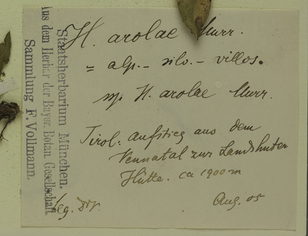 Staatsherbarium München.
Aus dem Herbar der Bayer. Botan. Gesellschaft
Sammlung F. Vollmann.
H. arolae Murr.
= alp. - silv. - villos.
H. arolae Murr.
Tirol. Aufstieg aus dem
Vennatal zur Landshuter
Hütte. ca 1900 m
leg.
Aug. 05